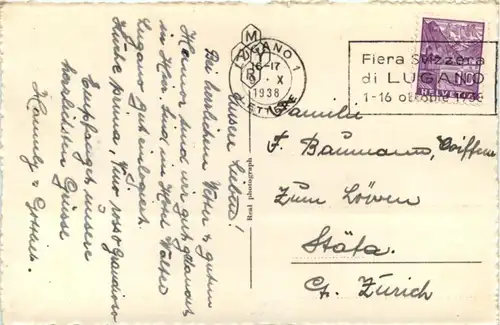 LUGANO 1
16-17
X
1938
LETTERE
Fiera Svizzera
di LUGANO
1-16 ottobre 1938
HELVETIA
Real photograph
Unsere Lieben!
Bei herrlichem Wetter & gutem
Humor sind wir gut gelandet
in hier. Sind im Hotel Walter
Lugano gut einlogiert.
Küche prima, Vino rosso
Empfanget unsere
herzlichsten Grüsse
Familie
F. Baumann, Coiffeur
Zum Löwen
Stäfa.
Ct. Zürich